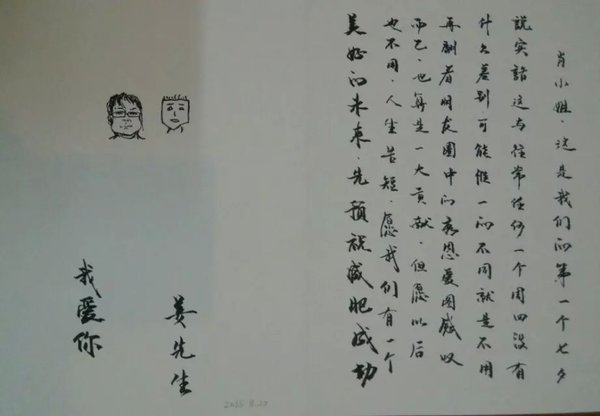 肖小姐,这是我们的第一个七夕
説实話这与往常任何一个周四没有
什么差别可能惟一的不同就是不用
再刷着朋友圈中的秀恩爱图感叹
而已,也算是一大贡献,但愿以后
也不用,人生苦短,愿我们有一个
美好的未来,先预祝减肥成功
姜先生
我爱你
2015 8.20